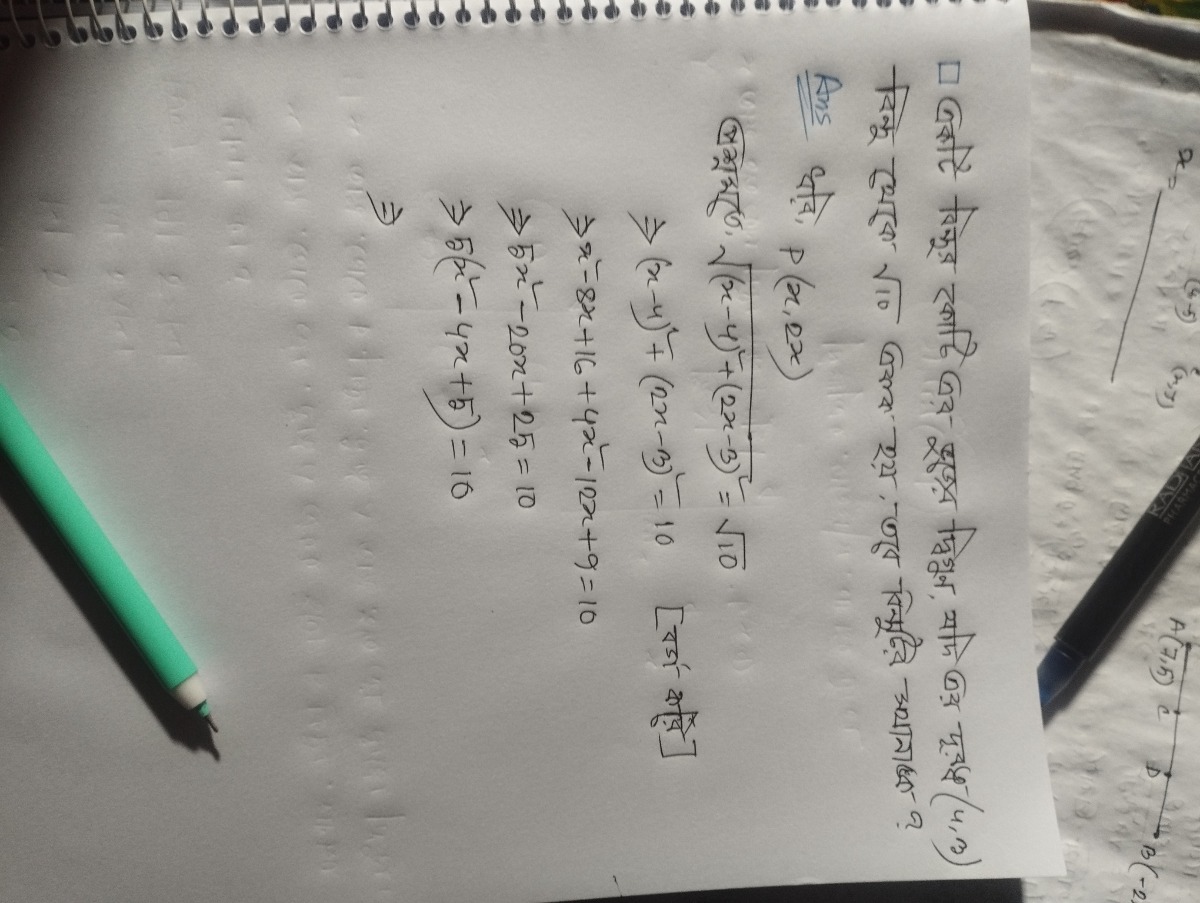 □ একটি বিন্দুর কোটি এর ভুজের দ্বিগুণ, যদি এর দূরত্ব (4,3)
বিন্দু থেকে √10 একক হয়, তবে বিন্দুটির স্থানাঙ্ক-?
Ans ধরি, P(x, 2x)
প্রশ্নমতে, √((x-4)²+(2x-3)²) = √10
⇒ (x-4)² + (2x-3)² = 10 [বর্গ করি]
⇒ x²-8x+16 + 4x²-12x+9 = 10
⇒ 5x²-20x+25 = 10
⇒ 5(x²-4x+5) = 10
⇒
A(7,5) C D B(-2,
RADIAN